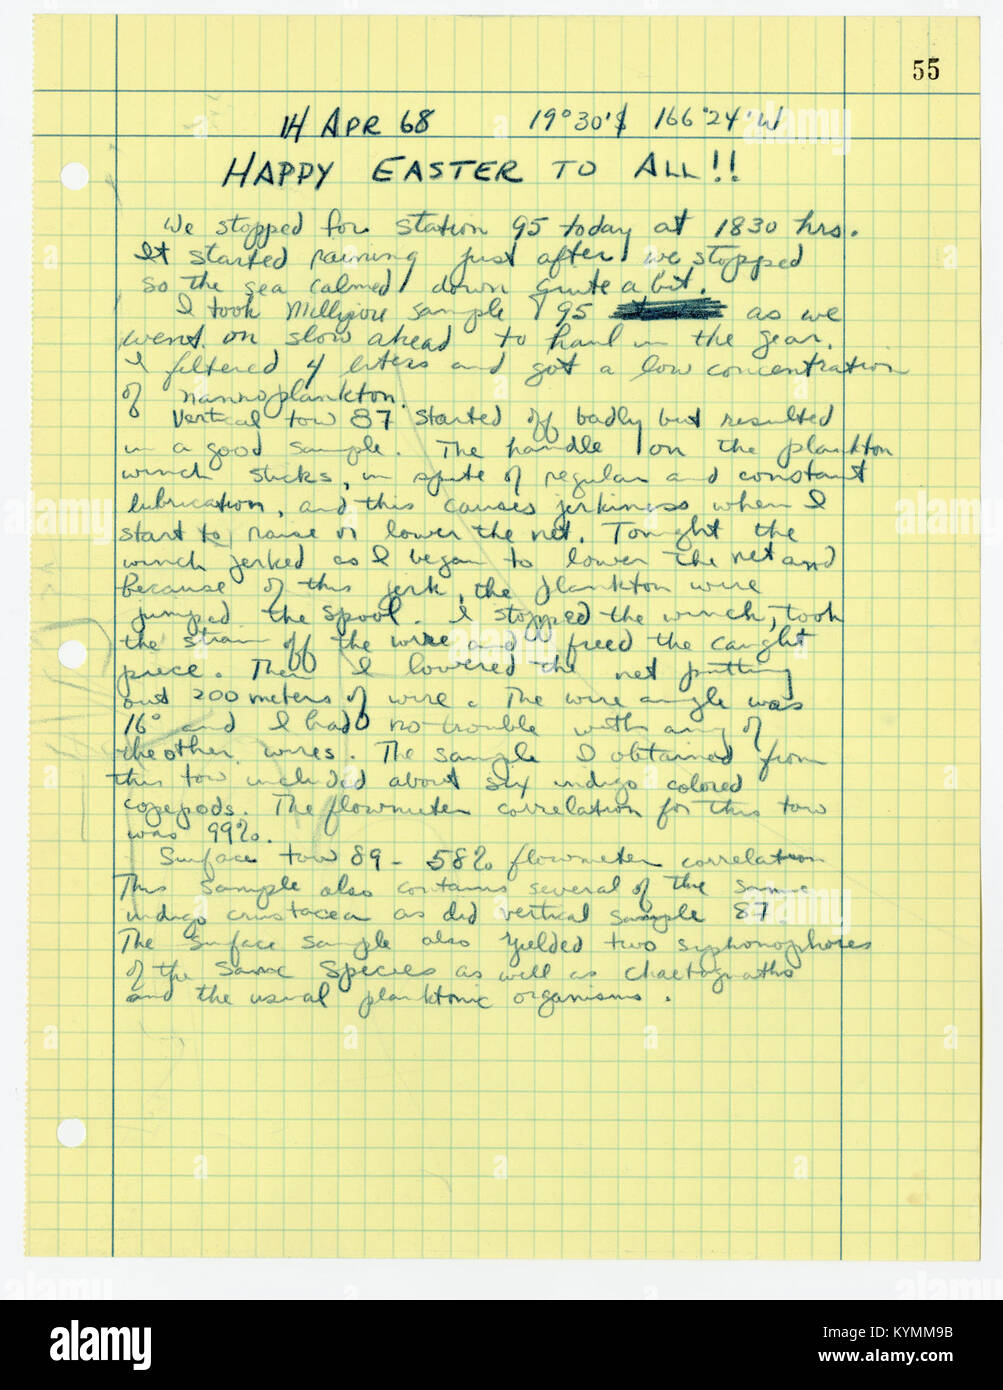 55
14 APR 68 19°30'S 166°24'W
HAPPY EASTER TO ALL!!
We stopped for station 95 today at 1830 hrs.
It started raining just after we stopped
so the sea calmed down quite a bit.
I took Millipore sample 95 as we
went on slow ahead to haul in the gear.
I filtered 4 liters and got a low concentration
of nannoplankton.
Vertical tow 87 started off badly but resulted
in a good sample. The handle on the plankton
winch sticks, in spite of regular and constant
lubrication, and this causes jerkiness when I
start to raise or lower the net. Tonight the
winch jerked as I began to lower the net and
because of this jerk, the plankton wire
jumped the spool. I stopped the winch, took
the strain off the wire and freed the caught
piece. Then I lowered the net putting
out 200 meters of wire. The wire angle was
16° and I had no trouble with any of
the other wires. The sample I obtained from
this tow included about six indigo colored
copepods. The flowmeter correlation for this tow
was 99%.
Surface tow 89 - 58% flowmeter correlation
This sample also contains several of the same
indigo crustacea as did vertical sample 87
The surface sample also yielded two siphonophores
of the same species as well as chaetognaths
and the usual planktonic organisms.
alamy
Image ID: KYMM9B
www.alamy.com